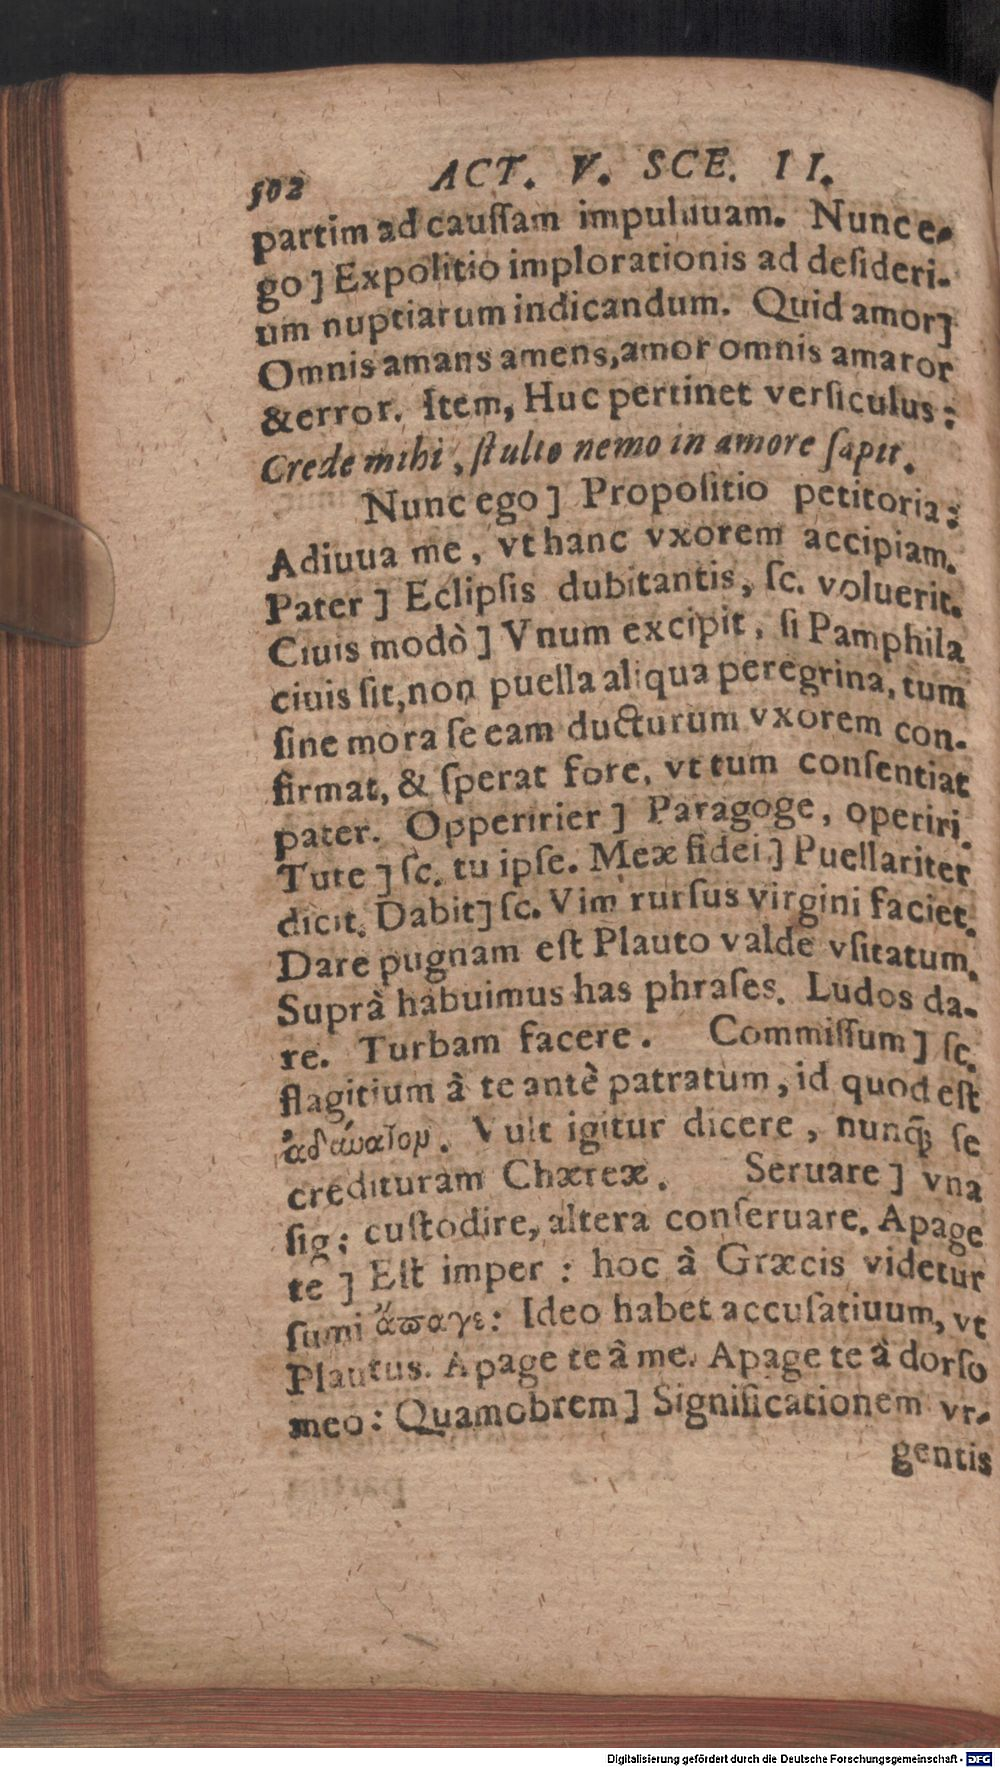 502 ACT. V. SCE. II.
partim ad cauſſam impulſiuam. Nunc e-
go] Expolitio implorationis ad deſideri-
um nuptiarum indicandum. Quid amor]
Omnis amans amens, amor omnis amaror
& error. Item, Huc pertinet verſiculus:
Crede mihi, ſtulto nemo in amore ſapit.
Nunc ego] Propoſitio petitoria:
Adiuua me, vt hanc vxorem accipiam.
Pater] Eclipſis dubitantis, ſc. voluerit.
Ciuis modò] Vnum excipit, ſi Pamphila
ciuis ſit, non puella aliqua peregrina, tum
ſine mora ſe eam ducturum vxorem con-
firmat, & ſperat fore, vt tum conſentiat
pater. Opperirier] Paragoge, operiri.
Tute] ſc. tu ipſe. Meæ fidei] Puellariter
dicit. Dabit] ſc. Vim rurſus virgini faciet.
Dare pugnam eſt Plauto valde vſitatum.
Suprà habuimus has phraſes. Ludos da-
re. Turbam facere. Commiſſum] ſc.
flagitium à te antè patratum, id quod eſt
ἀδύναϊον. Vult igitur dicere, nunq; ſe
credituram Chæreæ. Seruare] vna
ſig: cuſtodire, altera conſeruare. Apage
te] Eſt imper: hoc à Græcis videtur
ſumi ἄπαγε: Ideo habet accuſatiuum, vt
Plautus. Apage te à me. Apage te à dorſo
meo: Quamobrem] Significationem vr-
gentis
Digitalisierung gefördert durch die Deutsche Forschungsgemeinschaft - DFG